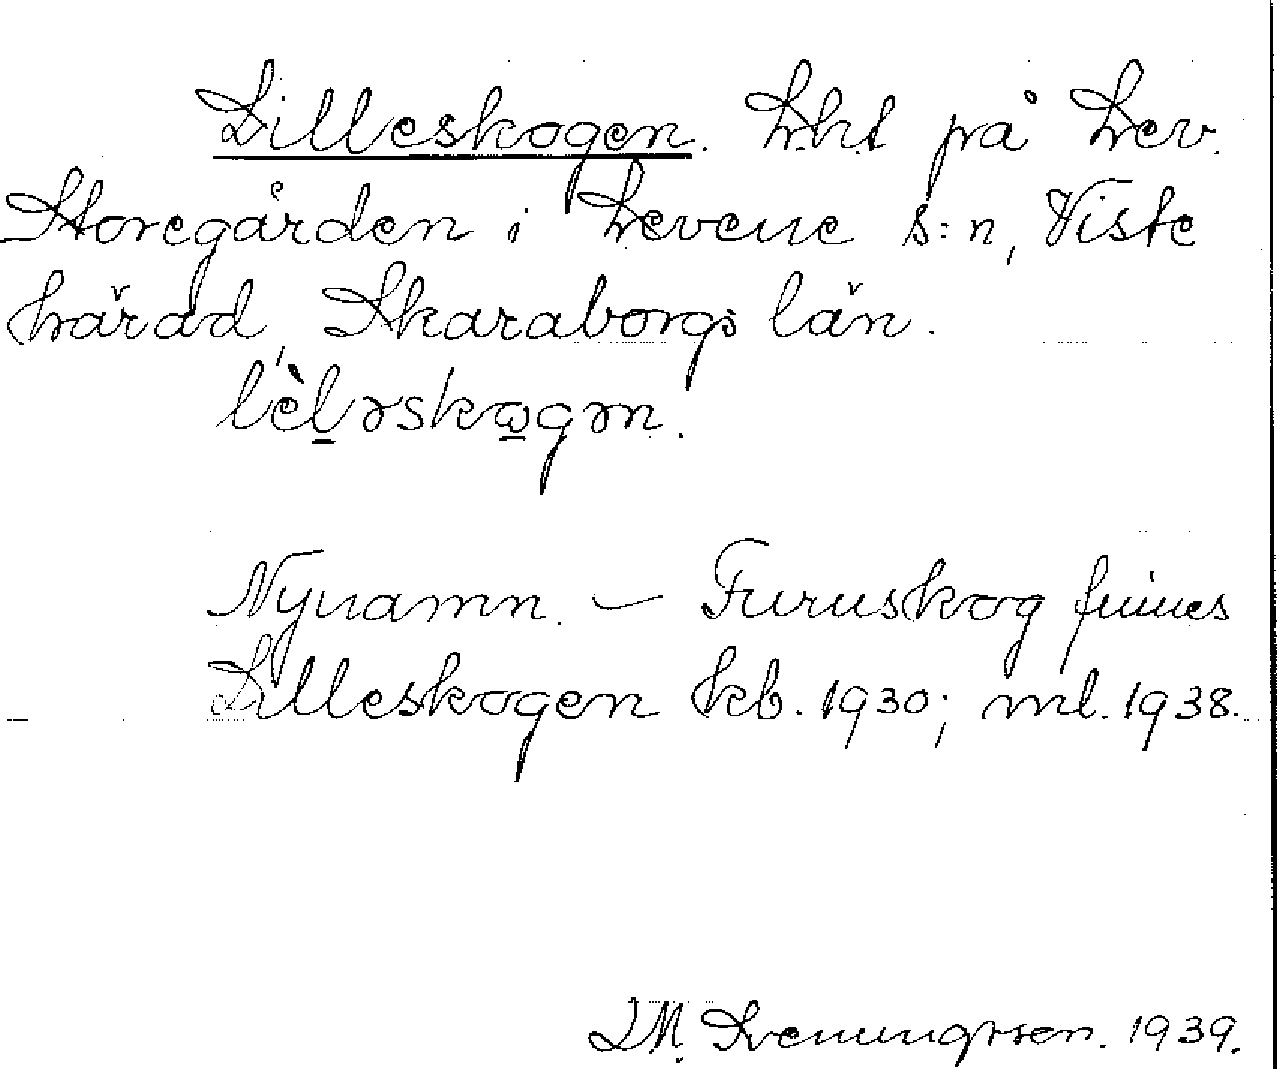 Lilleskogen. Lht på Lev.
Storegården i Levene s:n, Viste
härad, Skaraborgs län.
lèl̠əskω̠gən.
Nynamn. — Furuskog finnes
Lilleskogen kb. 1930; ml. 1938.
1939.